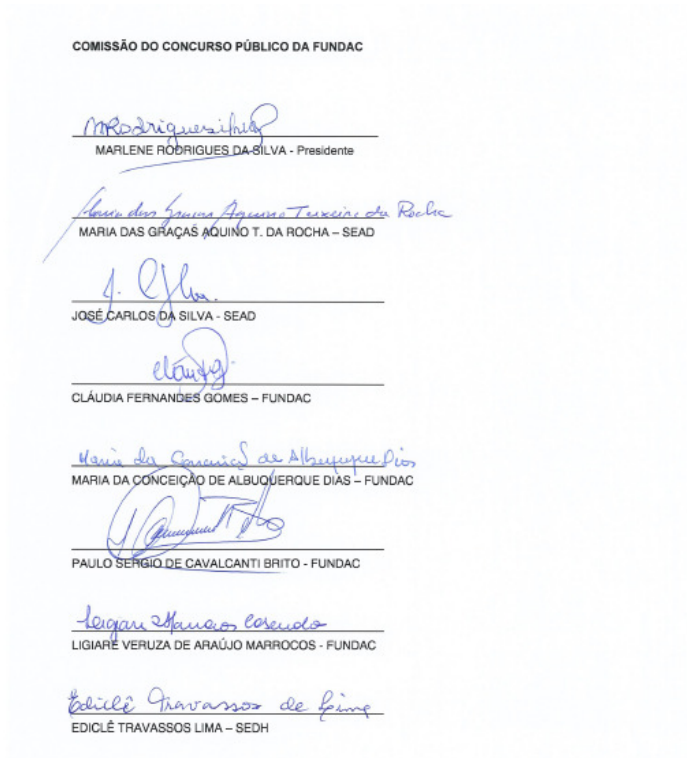 COMISSÃO DO CONCURSO PÚBLICO DA FUNDAC
MRodriguesilva
MARLENE RODRIGUES DA SILVA - Presidente
Maria das Graças Aquino Teixeira da Rocha
MARIA DAS GRAÇAS AQUINO T. DA ROCHA – SEAD
J. C Silva.
JOSÉ CARLOS DA SILVA - SEAD
CLÁUDIA FERNANDES GOMES – FUNDAC
Maria da Conceição de Albuquerque Dias
MARIA DA CONCEIÇÃO DE ALBUQUERQUE DIAS – FUNDAC
PAULO SERGIO DE CAVALCANTI BRITO - FUNDAC
LIGIARE VERUZA DE ARAÚJO MARROCOS - FUNDAC
Ediclê Travassos de Lima
EDICLÊ TRAVASSOS LIMA – SEDH